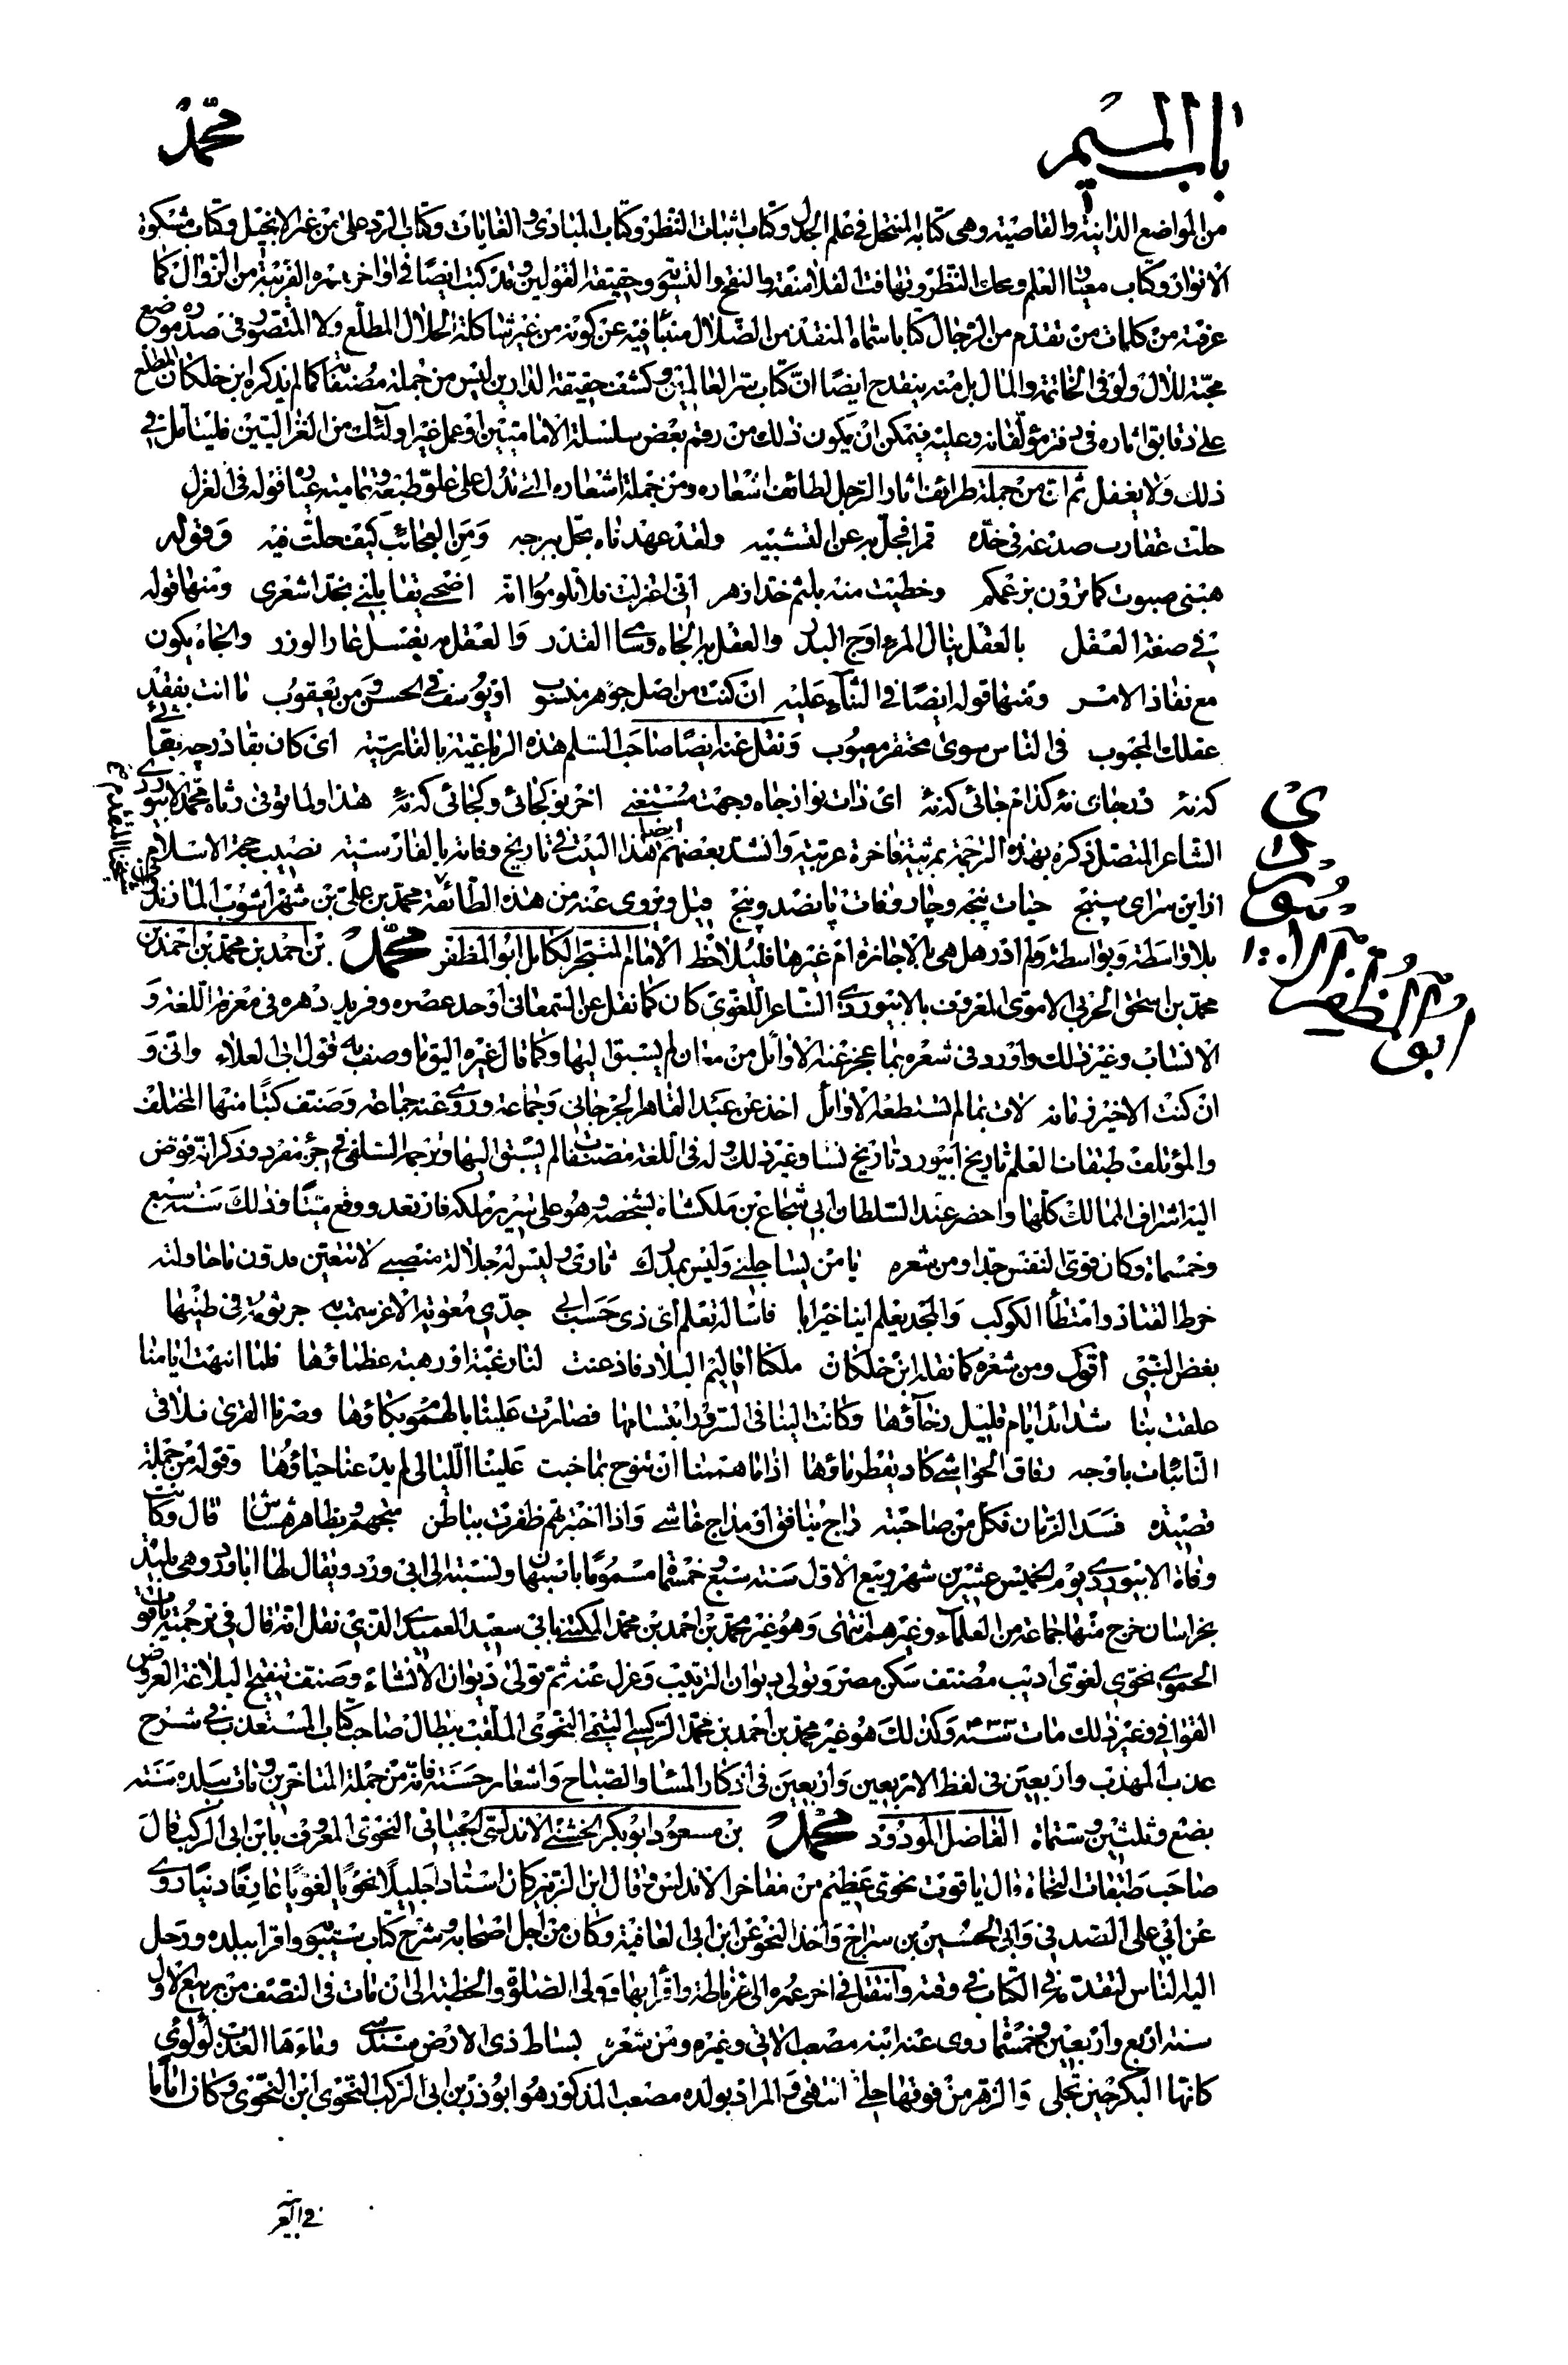 باب الميم
محمد
من المواضع الدانية والقاصية وهى كتابه المنتخل فى علم الجدل وكتاب اثبات النظر وكتاب المبادى والغايات وكتاب الرد على من غير الانجيل وكتاب مشكوة
الانوار وكتاب معيار العلم ومحك النظر وتهافت الفلاسفة والنفخ والتسوية وحقيقة القولين وقد كتب ايضا فى اواخر عمره القريبة من الزوال كما
عرفته من كلمات من تقدم من الرجال كتابا سماه المنقذ من الضلال منبئا فيه عن كونه من غير شاكلة الحلال المطلع ولا المقصور فى صدره موضع
محبة للال ولو فى الخاتمة والمال بل منه ينقدح ايضا ان كتاب سر العالمين وكشف حقيقة الدارين ليس من جملة مصنفاته كما لم يذكره ابن خلكان المطلع
على دقايق اثاره فى دفتر مؤلفاته وعليه فيمكن ان يكون ذلك من رقم بعض سلسلة الاماميين او عمل غير اولئك من الغزاليين فليتامل فى
ذلك ولا يغفل ثم ان من جملة طرائف اثار الرجل لطائف اشعاره ومن جملة اشعاره التى تدل على علو طبعه وتمامية عياره قوله فى الغزل
حلت عقارب صدغه فى خده قمرا فجل به عن التشبيه ولقد عهدناه يحل ببرجه ومن العجائب كيف حلت فيه وقوله
هبنى صبوت كما ترون بزعمكم وخطيت منه بلثم خد ازهر انى اعتزلت فلا تلوموا انه اضحى يقابلنى بخد اشعرى ومنها قوله
فى صفة العقل بالعقل ينال المرء اوج البدر والعقل به الجاه وسا القدر والعقل به يغسل عار الوزر والجاه يكون
مع نفاذ الامر ومنها قوله ايضا فى الثناء عليه ان كنت من اصل جوهر منسوب او يوسف فى الحسن ومن يعقوب ما انت بفقد
عقلك المحبوب فى الناس سوى محتقر معيوب ونقل عنه ايضا صاحب السلم هذه الرباعية بالفارسية اى كان بقا در چه بقائى
كه نه در جاى نه كدام جائى كه نه اى ذات تو از جاه وجهت مستغنى اخر تو كجائى وكجائى كه نه هذا ولما توفى رثاه محمد الابيوردى
الشاعر المتصل ذكره بهذه الترجمة بمرثية فاخرة عربية وانشد بعضهم ايضا هذا البيت فى تاريخ وفاته بالفارسية نصيب حجة الاسلام
ازاين سراى سپنج حيات پنجه وچار وفات پانصد وپنج قيل ويروى عنه من هذه الطائفة محمد بن على بن شهراشوب المازندرانى
بلا واسطة وبواسطة ولم ادر هل هى بالاجازة ام غيرها فليلاحظ الامام المتبحر الكامل ابو المظفر محمد بن احمد بن محمد بن احمد بن
محمد بن اسحق الحربى الاموى المعروف بالابيوردى الشاعر اللغوى كان كما نقل عن السمعانى اوحد عصره وفريد دهره فى معرفة اللغة و
الانساب وغير ذلك واورد فى شعره بما عجز عنه الاوائل من معان لم يسبق اليها وكما قال غيره اليق ما وصف به قول ابى العلاء وانى و
ان كنت الاخير زمانه لات بما لم تستطعه الاوائل اخذ عن عبد القاهر الجرجانى وجماعة وروى عنه جماعة وصنف كتبا منها المختلف
والمؤتلف طبقات العلم تاريخ ابيورد تاريخ نسا وغير ذلك وله فى اللغة مصنفات لم يسبق اليها وترجمه السلفى فى جزء مفرد وذكر انه فوض
اليه اشراف الممالك كلها واحضر عند السلطان ابى شجاع بن ملكشاه لشخصه وهو على سرير ملكه فارتعد ووقع ميتا وذلك سنة سبع
وخمسمائة وكان قوى النفس جدا ومن شعره يا من يساجلنى وليس بمدرك شاوى وليس له جلالة منصبى لا تتعبن فدون ما حاولته
خرط القتاد وامتطاء الكوكب والمجد يعلم اينا خير ابا فاساله تعلم اى ذى حسب ابى جدى معوية الاغر سمت به جرثومة فى طينها
بغض النبى اقول ومن شعره كما نقله ابن خلكان ملكنا اقاليم البلاد فاذعنت لنا رغبة او رهبة عظماؤها فلما انتهت ايامنا
علقت بنا شدائد ايام قليل رخاؤها وكانت الينا فى السرور ابتسامها فصارت علينا بالهموم بكاؤها وصرنا القرى نلاقى
النائبات باوجه رقاق الحواشى كاد يقطر ماؤها اذا ما هممنا ان نبوح بما جنت علينا الليالى لم يدعنا حياؤها وقوله من جملة
قصيدة فسد الزمان فكل من صاحبته راج ينافق او مداج خاشى واذا اختبرتهم ظفرت بباطن متجهم وبظاهر هشاش قال وكانت
وفاة الابيوردى يوم الخميس عشرين شهر ربيع الاول سنة سبع وخمسمائة مسموما باصبهان ولنسبة الى ابى ورد ويقال لها اباورد وهى بليدة
بخراسان خرج منها جماعة من العلماء وغيرهم انتهى وهو غير محمد بن احمد بن محمد المكنى بابى سعيد العميدى الذى نقل انه قال فى ترجمته ياقوت
الحموى نحوى لغوى اديب مصنف سكن مصر وتولى ديوان الترتيب وعزل عنه ثم تولى ديوان الانشاء وصنف تنقيح البلاغة العروض
القوافى وغير ذلك مات سنة وكذلك هو غير محمد بن احمد بن محمد الركسى اليتمى النحوى الملقب ببطال صاحب كتاب المستعذب فى شرح
عذب المهذب واربعين فى لفظ الاربعين واربعين فى اذكار المساء والصباح واشعار حسنة فانه من جملة المتاخرين ومات ببلده سنة
بضع وثلثين وستمائة الفاضل المودود محمد بن مسعود ابو بكر الخشنى الاندلسى الجيانى النحوى المعروف بابن ابى الركب قال
صاحب طبقات النحاة قال ياقوت نحوى عظيم من مفاخر الاندلس وقال ابن الزبير كان استادا جليلا نحويا لغويا عارفا دينا روى
عن ابى على الصدفى وابى الحسين بن سراج واخذ النحو عن ابن ابى العافية وكان من اجل اصحابه وشرح كتاب سيبويه واقرا ببلده ورحل
اليه الناس لتقدمه فى الكتاب فى وقته وانتقل فى اخر عمره الى غرناطة واقرأ بها وولى الصلوة والخطبة الى ان مات فى النصف من ربيع الاول
سنة اربع واربعين وخمسمائة روى عنه ابنه مصعب الاتى وغيره ومن شعره بساط ذى الارض سندسى وماءها العذب لؤلؤى
كانها البكر حين تجلى والزهر من فوقها حلى انتهى والمراد بولده مصعب المذكور هو ابوذر بن ابى الركب النحوى ابن النحوى وكان اماما
ابو المظفر
الابيوردى